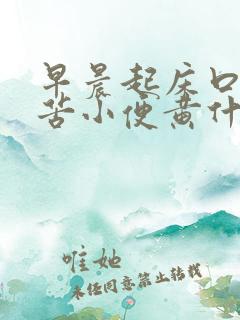 早晨起床口
苦小便黄什
唯她
未经同意禁止转载